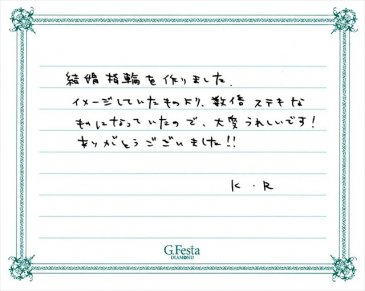 結婚指輪を作りました.
イメージしていたものより、数倍 ステキな
ものになっていたので、大変うれしいです!
ありがとうございました!!
K・R
G.Festa
DIAMOND